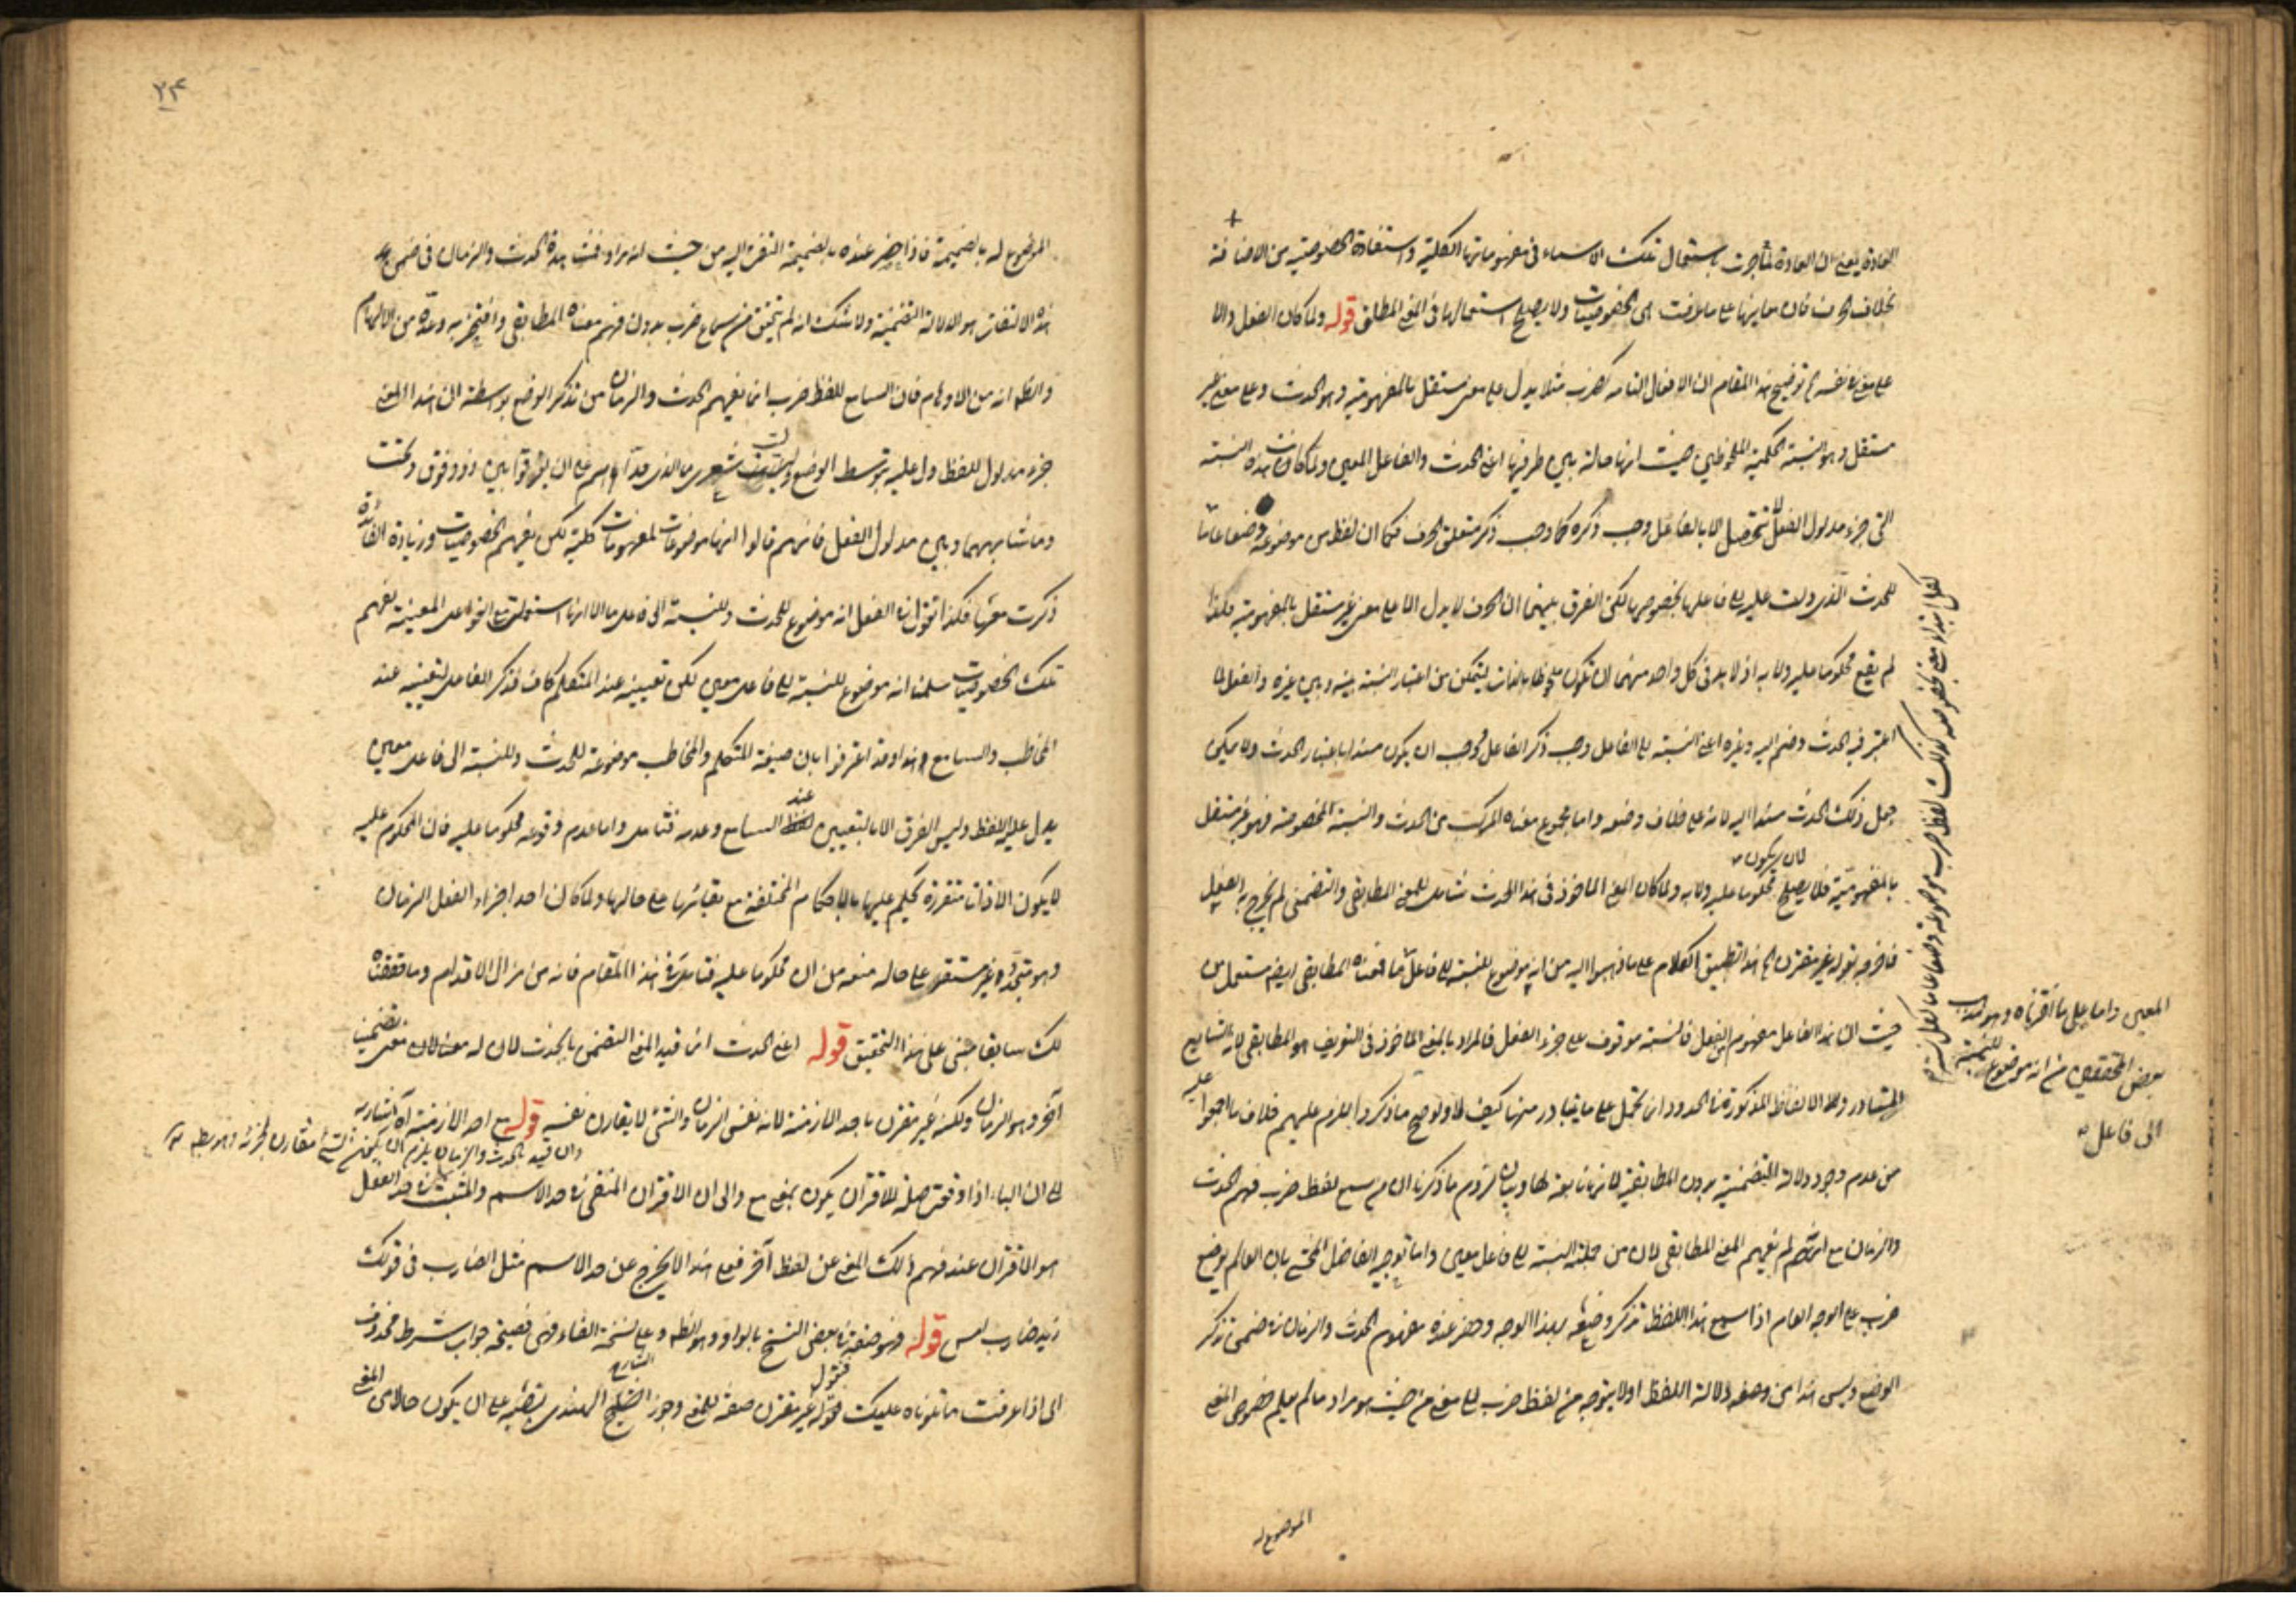 العادة يعني ان العادة لما جرت باستعمال تلك الاسماء في مفهوماتها الكلية واستفادة الخصوصية من الاضافة
بخلاف الحرف فان معانيها على ما عرفت هي الخصوصيات ولا يصلح استعمالها في المعنى المطلق قوله ولما كان الفعل دالا
على معنى في نفسه توضيح هذا المقام ان الافعال التامة كضرب مثلا يدل على معنى مستقل بالمفهومية وهو الحدث وعلى معنى غير
مستقل وهو النسبة الحكمية الملحوظة من حيث انها حالة بين طرفيها اعني الحدث والفاعل المعين ولما كانت هذه النسبة
التي جزء مدلول الفعل لا تتحصل الا بالفاعل وجب ذكره كما وجب ذكر متعلق الحرف فكما ان لفظ من موضوعة وضعا عاما
للحدث الذي دلت عليه الى فاعل بخصوصها لكن الفرق بينهما ان الحرف لا يدل الا على معنى غير مستقل بالمفهومية فلهذا
لم يقع محكوما عليه ولا به اذ لا بد في كل واحد منهما ان يكون ملحوظا بالذات ليتمكن من اعتبار النسبة بينه وبين غيره والفعل لما
اعتبر فيه الحدث وضم اليه وغيره اعني النسبة الى الفاعل وجب ذكر الفاعل فوجب ان يكون مسندا باعتبار الحدث ولا يمكن
جعل ذلك الحدث مسندا اليه لانه على خلاف وضعه واما مجموع معناه المركب من الحدث والنسبة المخصوصة فهو غير مستقل
بالمفهومية فلا يصلح لان يكون محكوما عليه ولا به ولما كان المعنى الماخوذ في هذا الحدث شاملا للمعنى المطابقي والتضمني لم يخرج به الفعل
فاخرجه بقوله غير مقترن هذا تطبيق الكلام على ما ذهبوا اليه من انه موضوع للنسبة الى فاعل ما فمعناه المطابقي ايضا مستعمل من
حيث ان هذا الفاعل مفهوم من الفعل فالنسبة موقوف على جزء الفعل فالمراد بالمعنى الماخوذ في التعريف هو المطابقي لانه الشايع
المتبادر والا الالفاظ المذكورة في الحدود ان تحمل على ما يتبادر منها كيف لا ولو صح ما ذكروا يلزم عليهم خلاف ما اجمعوا عليه
من عدم وجود دلالة التضمنية بدون المطابقية لانها تابعة لها وبيان لزوم ما ذكرنا ان من سمع لفظ ضرب فهم الحدث
والزمان مع انه لم يفهم المعنى المطابقي لان من جملته النسبة الى فاعل معين واما توجيه الفاضل المحشي بان العالم بوضع
ضرب على الوجه العام اذا سمع هذا اللفظ تذكر وضعه بهذا الوجه وحضر عنده مفهوم الحدث والزمان في ضمن تذكر
الوضع وليس هذا من وصفه دلالة اللفظ اولا يتوجه من لفظ ضرب الى معنى من حيث هو مراد ما لم يعلم خصوص المعنى
الموضوع له
المعين واما على ما قررناه وهو مذهب
بعض المحققين من انه موضوع للنسبة
الى فاعل
٢٣
الموضوع له بالضميمة فاذا حضر عنده بالضميمة التفت اليه من حيث انه مراد فنسبة الحدث والزمان في ضمن
هذه الالتفات هو الدلالة التضمنية ولا شك انه لم يتحقق من سماع ضرب بدون فهم معناه المطابقي وافتخر به وعده من الالهام
والظاهر انه من الاوهام فان السامع للفظ ضرب انما يفهم الحدث والزمان من تذكر الوضع بواسطة ان هذا المعنى
جزء مدلول اللفظ دل عليه بتوسط الوضع وليت شعري ما الذي هداهم على ان يفرقوا بين ذو وفوق وتحت
وما شابهما وبين مدلول الفعل فانهم قالوا انها موضوعات لمفهومات كلية لكن يفهم الخصوصيات وزيادة الفائدة
ذكرت معها فلهذا تقول في الفعل انه موضوع للحدث وللنسبة الى فاعل ما الا انها استعملت مع الفواعل المعينة يفهم
تلك الخصوصيات سلمنا انه موضوع للنسبة الى فاعل معين لكن تعيينه عند المتكلم كاف فذكر الفاعل لتعيينه عند
المخاطب والسامع هذا وقد اعترفوا بان صيغة المتكلم والمخاطب موضوعة للحدث وللنسبة الى فاعل معين
يدل عليه اللفظ وليس الفرق الا بالتعيين عند السامع وعدمه فتامل واما عدم وقوعه محكوما عليه فان المحكوم عليه
لا يكون الا ذاتا متقررة يحكم عليها بالاحكام المختلفة مع بقائها على حالها ولما كان احد اجزاء الفعل الزمان
وهو متجدد غير مستقر على حاله منعه من ان محكوما عليه فتامل في هذا المقام فانه من مزال الاقدام وما حققناه
لك سابقا مبني على هذا التحقيق قوله اعني الحدث انما قيد المعنى التضمني بالحدث لان له معنى تضمنيا
آخر وهو الزمان ولكنه غير مقترن باحد الازمنة لانه نفس الزمان والشيء لا يقارن نفسه قوله مع احد الازمنة اشارة
الى ان الباء اذا وقعت صلة للاقتران يكون بمعنى مع والى ان الاقتران المنفي في حد الاسم والمثبت في حد الفعل
هو الاقتران عند فهم ذلك المعنى عن لفظ آخر فعلى هذا لا يخرج عن حد الاسم مثل الضارب في قولك
زيد ضارب امس قوله فهو صفة في بعض النسخ بالواو وهو الظاهر وعلى نسخة الفاء فهي فصيحة جواب شرط محذوف
اي اذا عرفت ما تلوناه عليك فنقول قوله غير مقترن صفة للمعنى وجوز الشارح الهندي نصبه على ان يكون حالا من المعنى